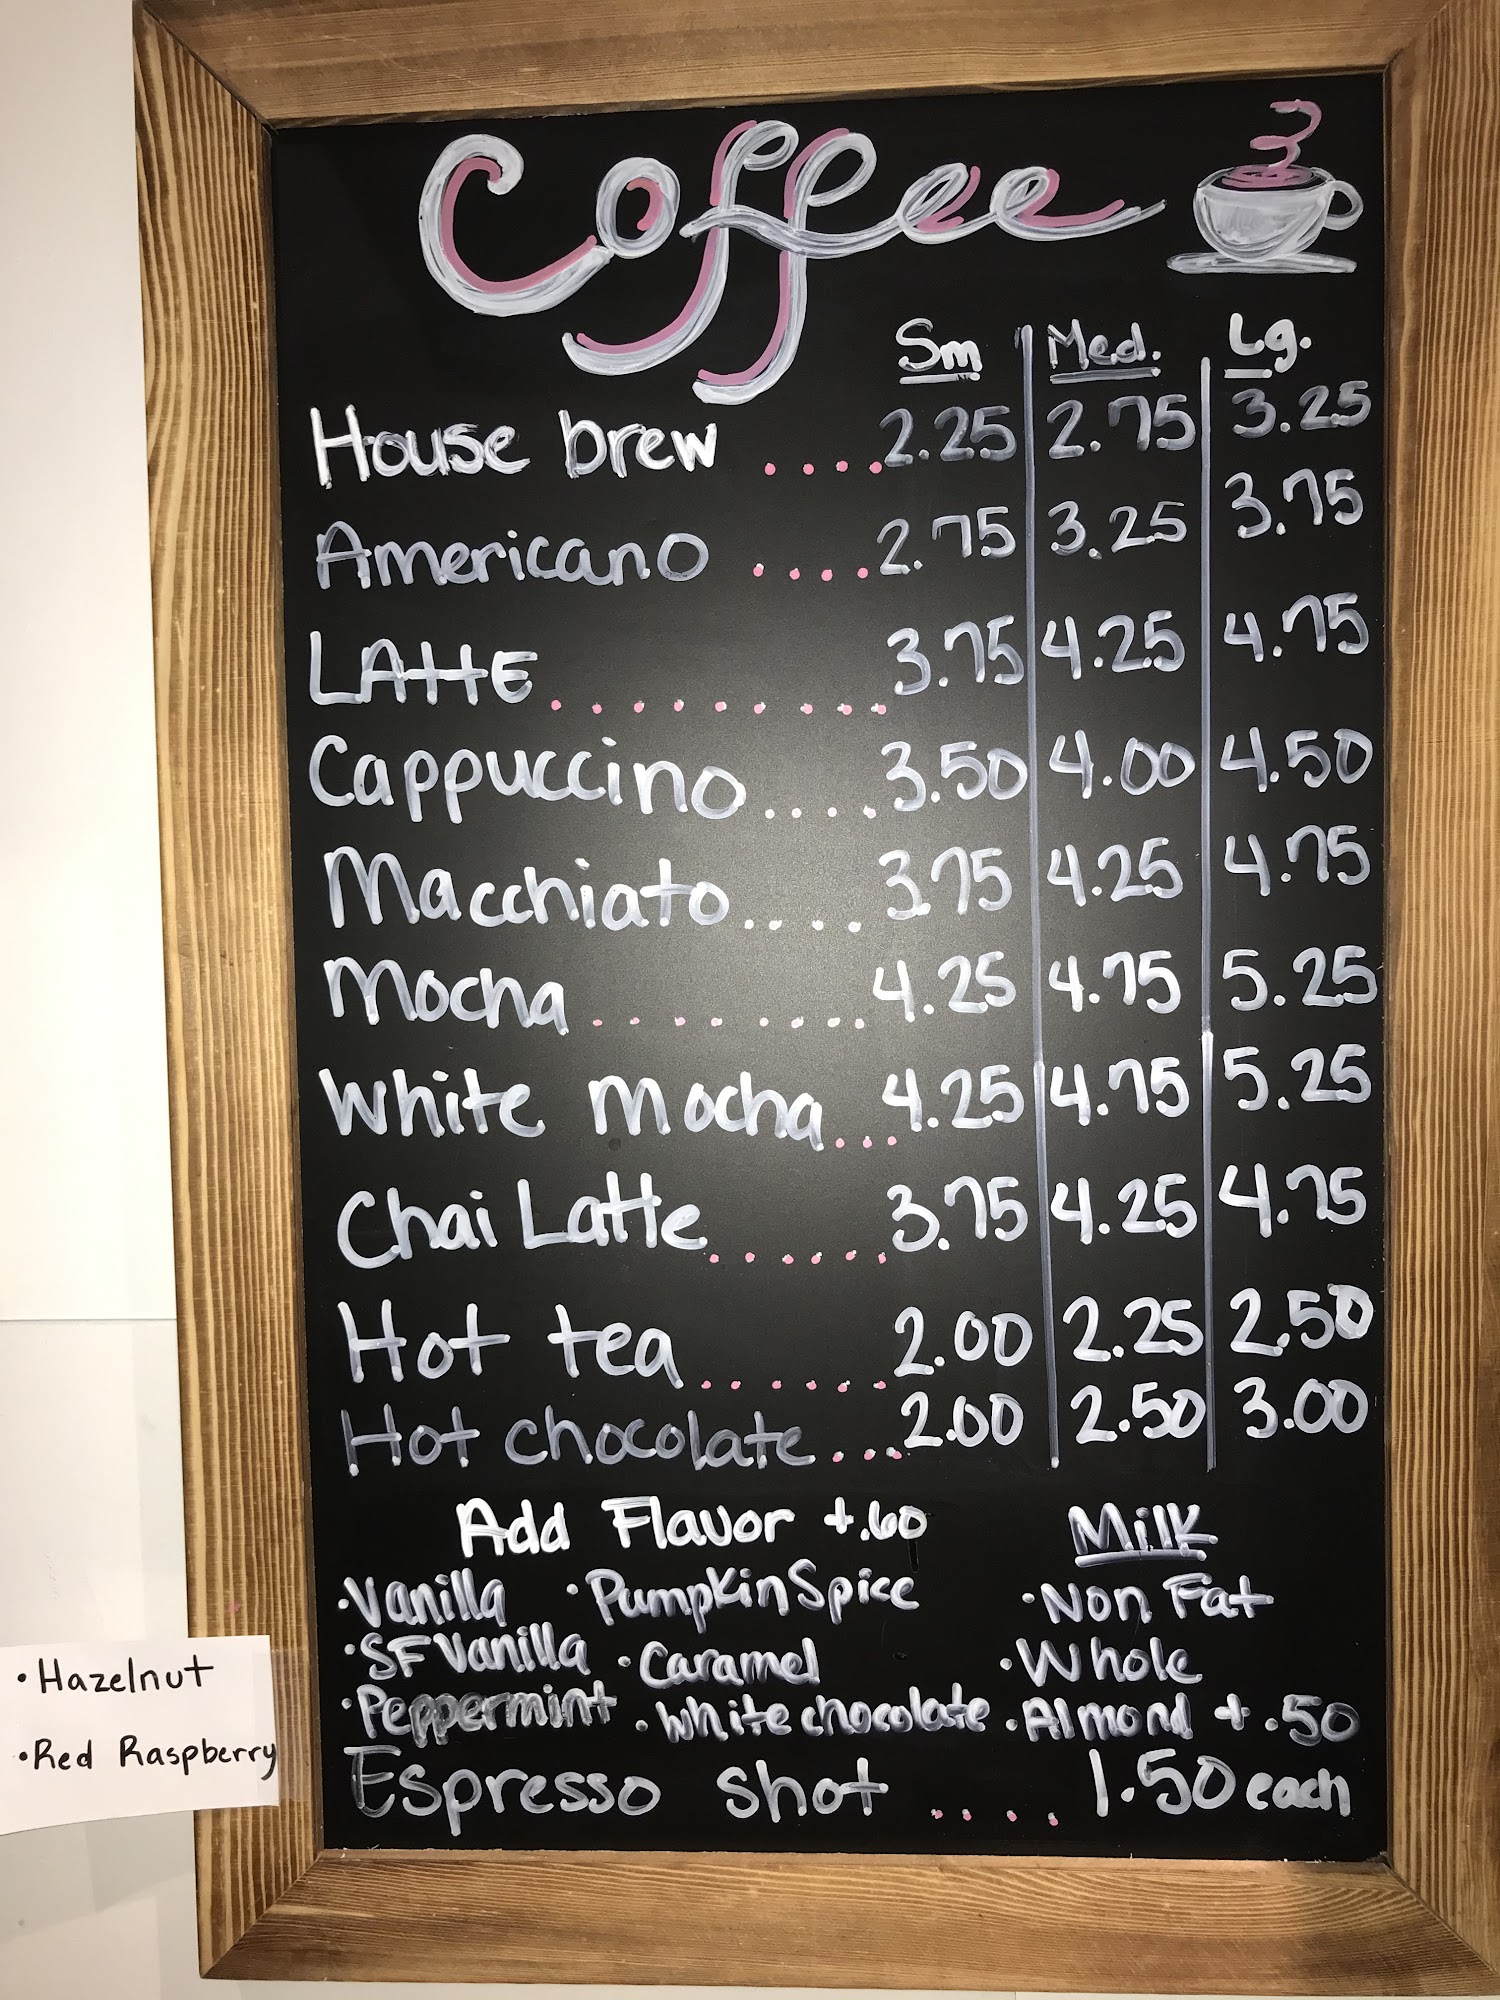 Coffee
Sm Med. Lg.
House brew ....2.25 2.75 3.25
Americano ....2.75 3.25 3.75
LAttE......... 3.75 4.25 4.75
Cappuccino.... 3.50 4.00 4.50
Macchiato.... 3.75 4.25 4.75
Mocha ........ 4.25 4.75 5.25
White Mocha... 4.25 4.75 5.25
Chai Latte...... 3.75 4.25 4.75
Hot tea...... 2.00 2.25 2.50
Hot chocolate... 2.00 2.50 3.00
Add Flavor +.60 Milk
•Vanilla •Pumpkin Spice •Non Fat
•SF Vanilla •Caramel •Whole
•Peppermint •White chocolate •Almond +.50
•Hazelnut
•Red Raspberry
Espresso shot .... 1.50 each